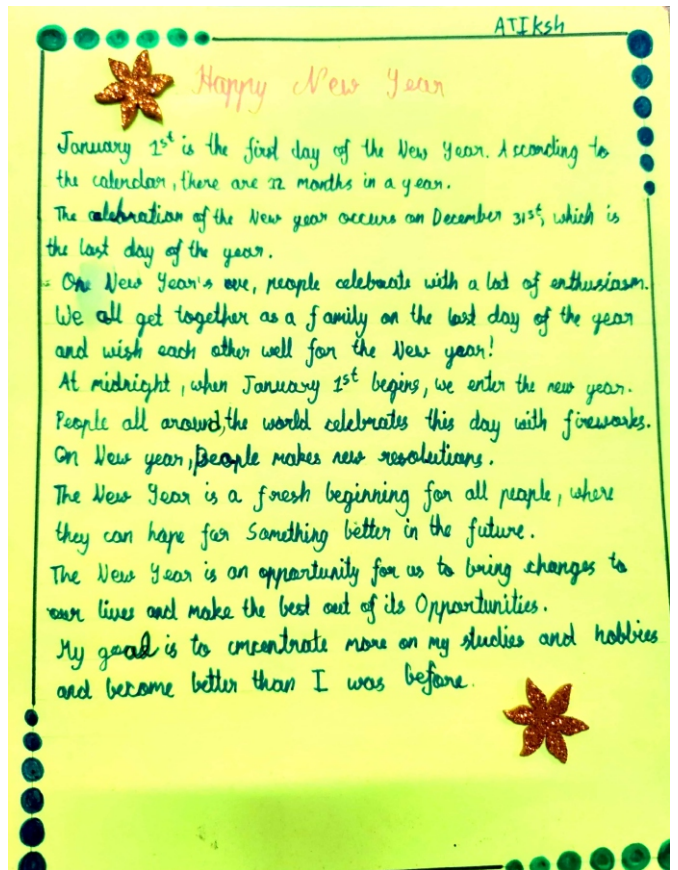 ATIksh
Happy New Year
January 1st is the first day of the New Year. According to
the calendar, there are 12 months in a year.
The celebration of the New year occurs on December 31st, which is
the last day of the year.
One New Year's eve, people celebrate with a lot of enthusiasm.
We all get together as a family on the last day of the year
and wish each other well for the New year!
At midnight, when January 1st begins, we enter the new year.
People all around, the world celebrates this day with fireworks.
On New year, people makes new resolutions.
The New Year is a fresh beginning for all people, where
they can hope for Something better in the future.
The New Year is an opportunity for us to bring changes to
our lives and make the best out of its Opportunities.
My goal is to concentrate more on my studies and hobbies
and become better than I was before.